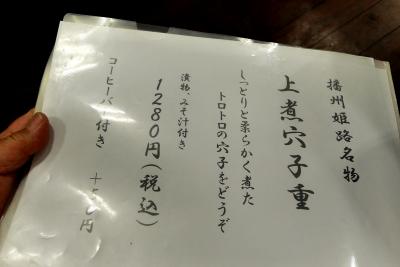 播州姫路名物
上煮穴子重
しっとりと柔らかく煮た
トロトロの穴子をどうぞ
漬物、みそ汁付き
1280円(税込)
コーヒーバー付き
+50円